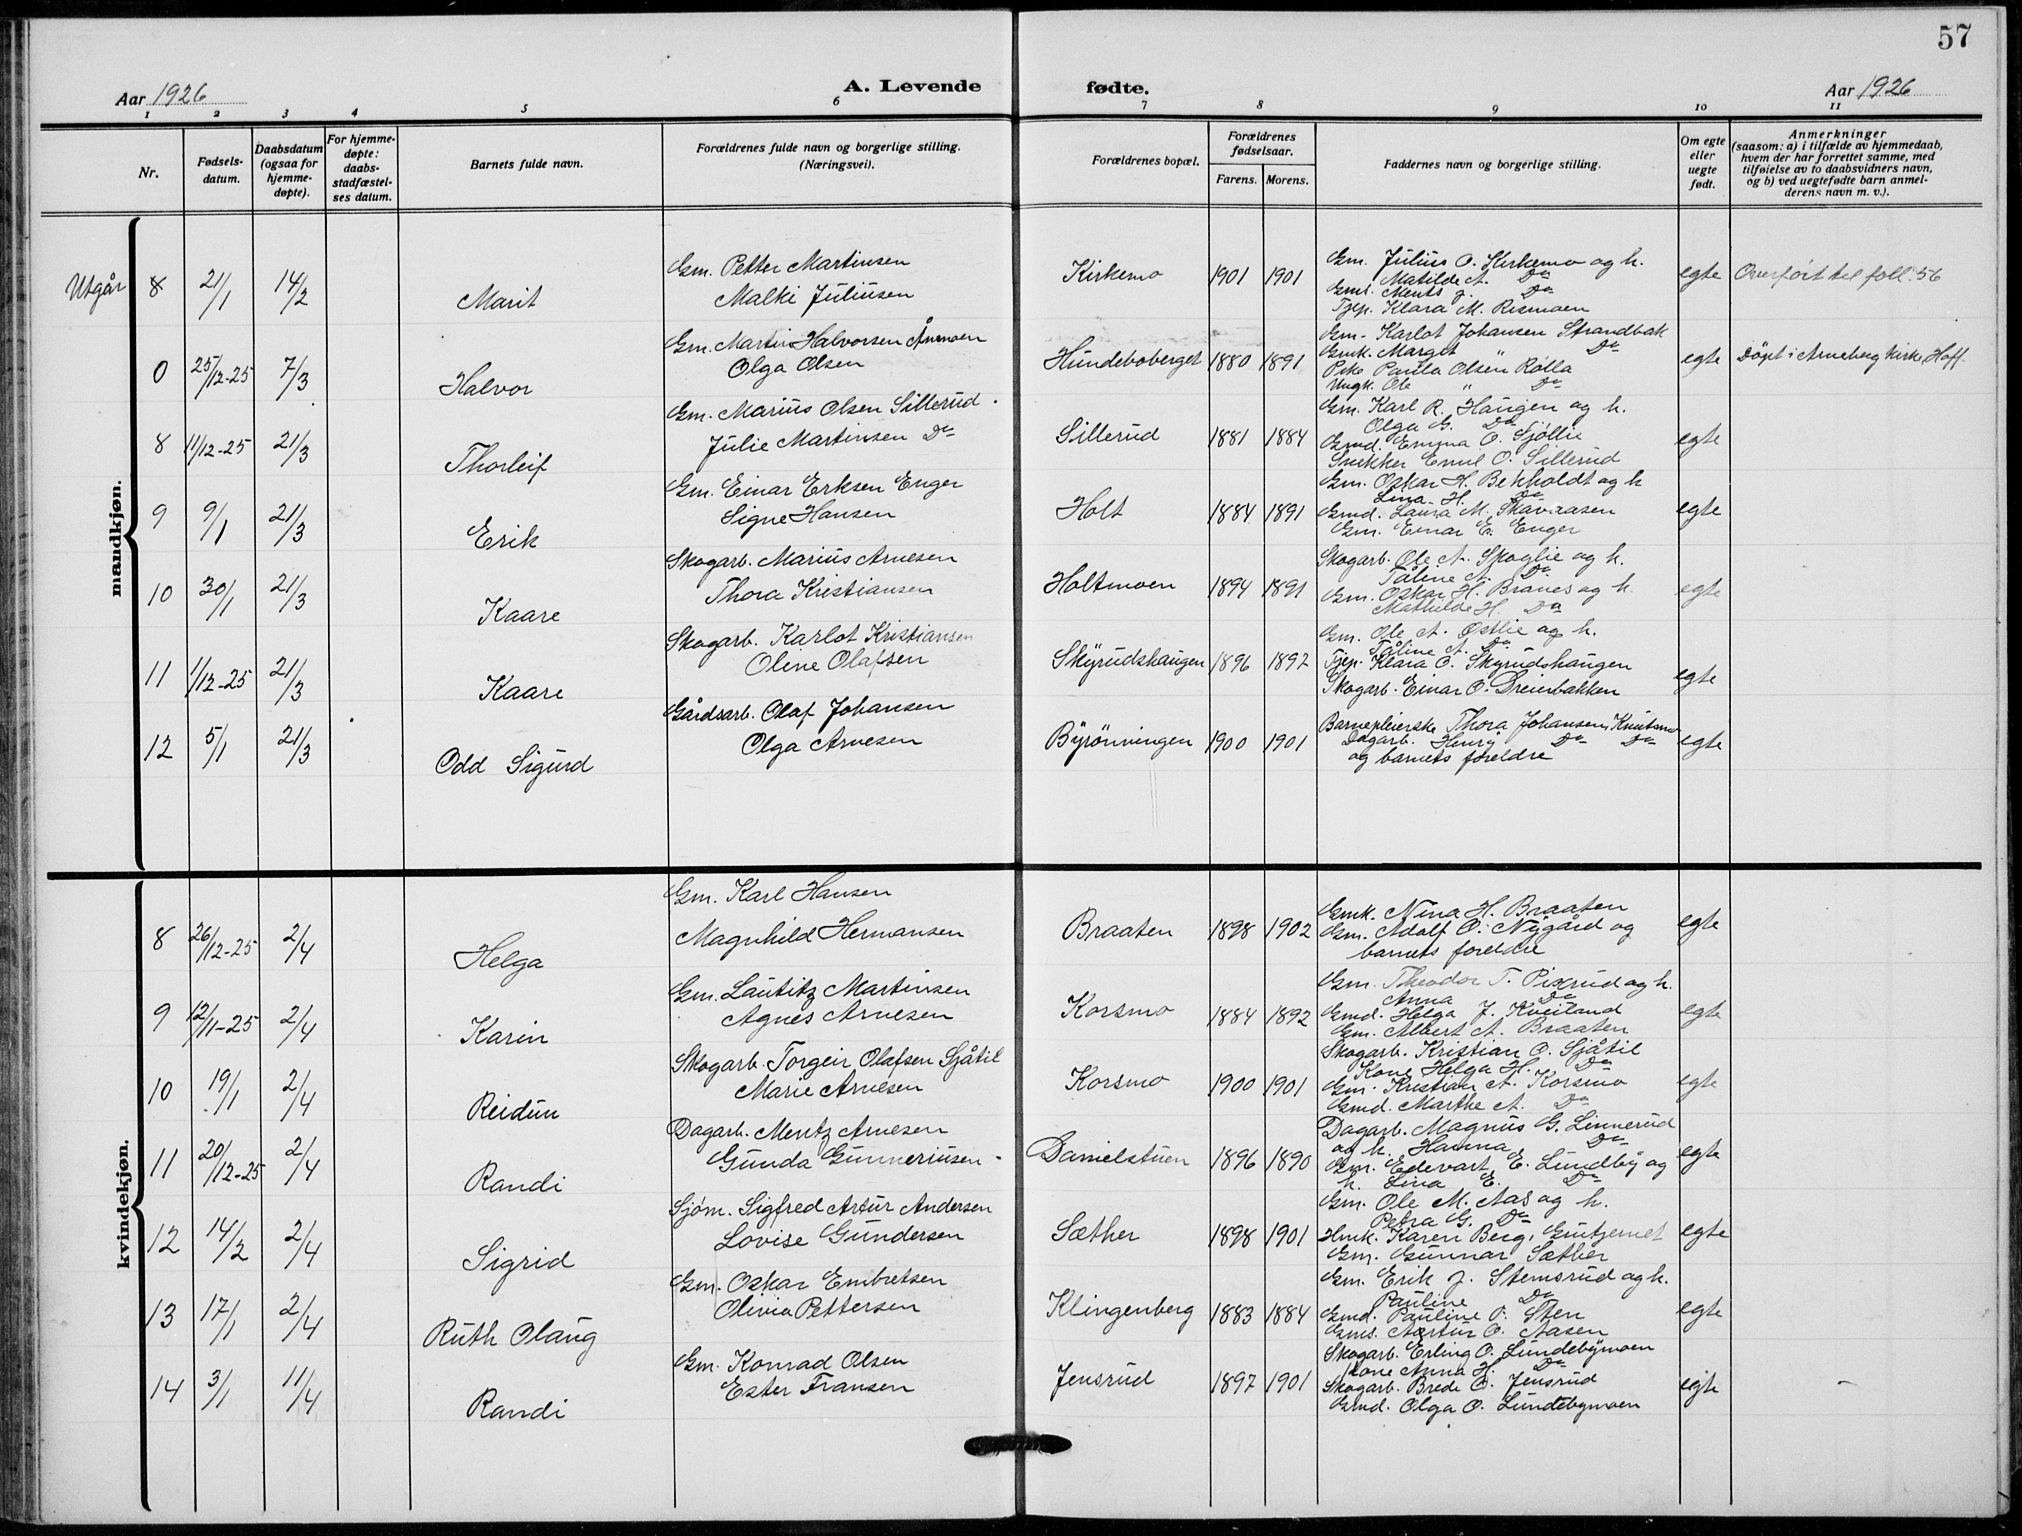 57
Aar 1926
A. Levende fødte.
Aar 1926
1 2 3 4 5 6 7 8 9 10 11
Nr.
Fødsels-
datum.
Daabsdatum
(ogsaa for
hjemme-
døpte).
For hjemme-
døpte:
daabs-
stadfæstel-
ses datum.
Barnets fulde navn.
Forældrenes fulde navn og borgerlige stilling.
(Næringsvei).
Forældrenes bopæl.
Forældrenes
fødselsaar.
Farens. Morens.
Faddernes navn og borgerlige stilling.
Om egte
eller
uegte
født.
Anmerkninger
(saasom: a) i tilfælde av hjemmedaab,
hvem der har forrettet samme, med
tilføielse av to daabsvidners navn,
og b) ved uegtefødte barn anmel-
derens navn m. v.).
mandkjøn.
Utgår 8 21/1 14/2 Marit
Gm. Petter Martinsen
Malki Juliusen
Kirkemo 1901 1901
Gm. Julius O. Kirkemo og h.
Matilde A. Do
Gms. Ments J. Do
Tjep. Klara M. Rismoen
egte Overført til foll. 56
0 25/12-25 7/3 Halvor
Gm. Martin Halvorsen Arnmoen
Olga Olsen
Hundeboberget 1880 1891
Gm. Karlot Johansen Strandbak
Gmk. Margit " Do
Pike Paula Olsen Rølla
Ungk. Ole " Do
egte Döpt i Arneberg Kirke, Hoff.
8 11/12-25 21/3 Thorleif
Gm. Marius Olsen Sillerud
Julie Martinsen Do
Sillerud 1881 1884
Gm. Karl R. Haugen og h.
Olga G. Do
Gmd. Emma O. Sjøllie
Snekker Emil O. Sillerud
egte
9 9/1 21/3 Erik
Gm. Einar Erksen Enger
Signe Hansen
Holt 1884 1891
Gm. Oskar H. Bekholdt og h
Lina H. Do
Gmd. Laura M. Skavaasen
Gm. Einar E. Enger
egte
10 30/1 21/3 Kaare
Skogarb. Marius Arnesen
Thora Kristiansen
Holtmoen 1894 1891
Skogarb. Ole A. Skoglie og h.
Tåline A. Do
Gm. Oskar H. Branes og h.
Mathilde H. Do
egte
11 1/12-25 21/3 Kaare
Skogarb. Karlot Kristiansen
Olene Olafsen
Skyrudshaugen 1896 1892
Gm. Ole A. Østlie og h.
Tåline A. Do
Tjep. Klara O. Skyrudshaugen
Skogarb. Einar O. Breierbakken
egte
12 5/1 21/3 Odd Sigurd
Gårdsarb. Olaf Johansen
Olga Arnesen
Byrönningen 1900 1901
Barnepleierske Thora Johansen, Knutsmo
Dagarb. Henry Do Do
og barnets foreldre
egte
kvindekjøn.
8 26/12-25 2/4 Helga
Gm. Karl Hansen
Magnhild Hermansen
Braaten 1898 1902
Gmk. Nina H. Braaten
Gm. Adolf O. Nygård og
barnets foreldre
egte
9 12/11-25 2/4 Karin
Gm. Lauritz Martinsen
Agnes Arnesen
Korsmo 1884 1892
Gm. Theodor T. Pixrud og h.
Anna Do
Gmd. Helga J. Kveiland
Gm. Albert A. Braaten
egte
10 19/1 2/4 Reidun
Skogarb. Torgeir Olafsen Sjåtil
Marie Arnesen
Korsmo 1900 1901
Skogarb. Kristian O. Sjåtil
Kone Helga H. Do
Gm. Kristian A. Korsmo
Gmd. Marthe A. Do
egte
11 20/12-25 2/4 Randi
Dagarb. Mentz Arnesen
Gunda Gunneriusen
Danielstuen 1896 1890
Dagarb. Magnus G. Linnerud
og h. Hanna Do
Gm. Edevart E. Lundby og
h. Lina E. Do
egte
12 14/2 2/4 Sigrid
Sjøm. Sigfred Artur Andersen
Lovise Gundersen
Sæther 1898 1901
Gm. Ole M. Aas og h.
Petra G. Do
Hmk. Karen Berg, Gmtjernet
Gm. Gunnar Sæther
egte
13 17/1 2/4 Ruth Olaug
Gm. Oskar Embretsen
Olivia Pettersen
Klingenberg 1883 1884
Gm. Erik J. Stemsrud og h.
Pauline Do
Gmd. Pauline P. Sten
Gms. Artur O. Aasen
egte
14 3/1 11/4 Randi
Gm. Konrad Olsen
Ester Fransen
Jensrud 1897 1901
Skogarb. Erling O. Lundebymoen
Kone Anna H. Do
Skogarb. Brede O. Jensrud
Gmd. Olga O. Lundebymoen
egte